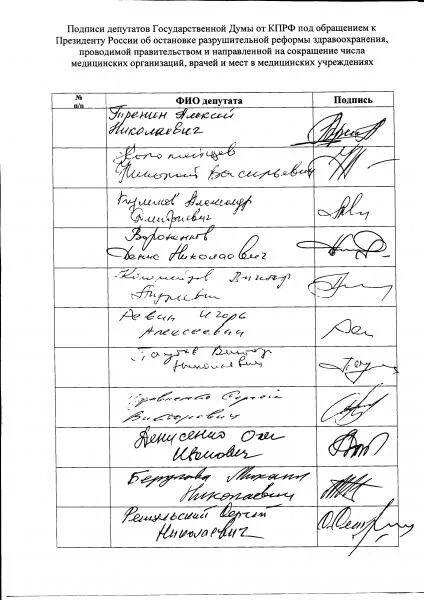 Подписи депутатов Государственной Думы от КПРФ под обращением к
Президенту России об остановке разрушительной реформы здравоохранения,
проводимой правительством и направленной на сокращение числа
медицинских организаций, врачей и мест в медицинских учреждениях
№
п/п
ФИО депутата
Подпись
Алексей
Николаевич
Коломейцев
Николай Васильевич
Александр
Дмитриевич
Вороненков
Денис Николаевич
Коломейцев Виктор
Андреевич
Ревин Игорь
Алексеевич
Николаевич
Сергей
Викторович
Денисенко Олег
Иванович
Берулава Михаил
Николаевич
Решульский Сергей
Николаевич